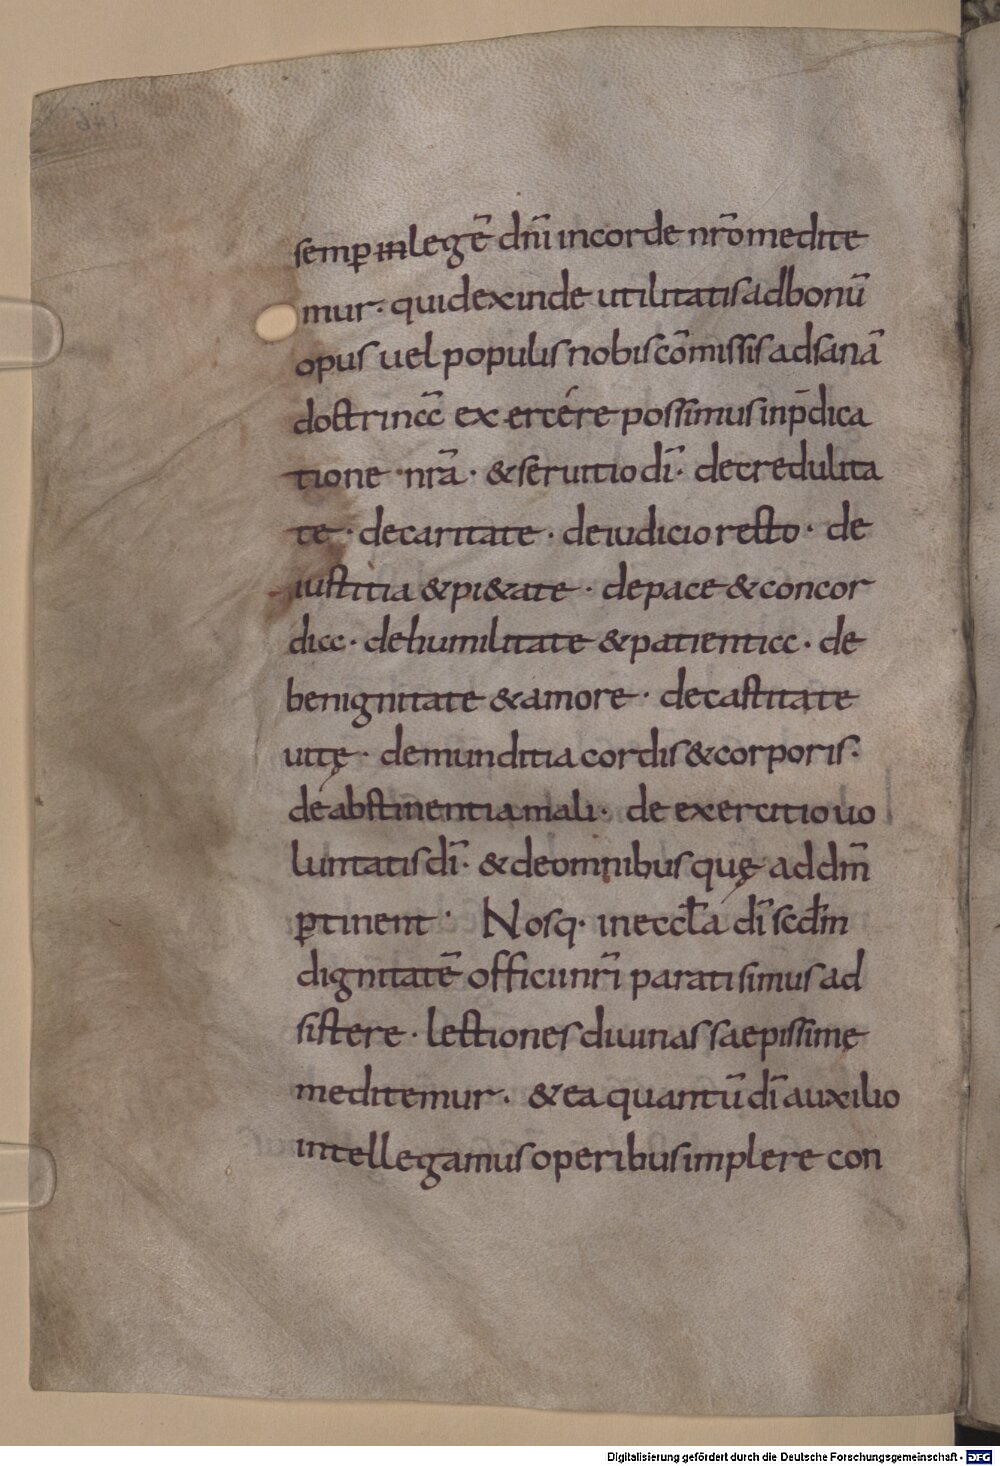 semꝑ in legē dñi in corde nr̃o medite
mur · quid exinde utilitatis ad bonū
opus uel populis nobis cōmissis ad sanā
doctrinā exercére possimus in p̄dica
tione nr̃a · & seruitio dī · de credulita
te · de caritate · de iudicio recto · de
iustitia & pi&ate · de pace & concor
dia · de humilitate & patientia · de
benignitate & amore · de castitate
uitę · de munditia cordis & corporis ·
de abstinentia mali · de exercitio uo
luntatis dī · & de omnibus quę ad dm̄
ꝑtinent · Nosq· in eccƚa dī scđm
dignitatē officii nr̃i parati simus ad
sistere · lectiones diuinas saepissimę
meditemur · & ea quantū dī auxilio
intellegamus operibus implere con
Digitalisierung gefördert durch die Deutsche Forschungsgemeinschaft · DFG